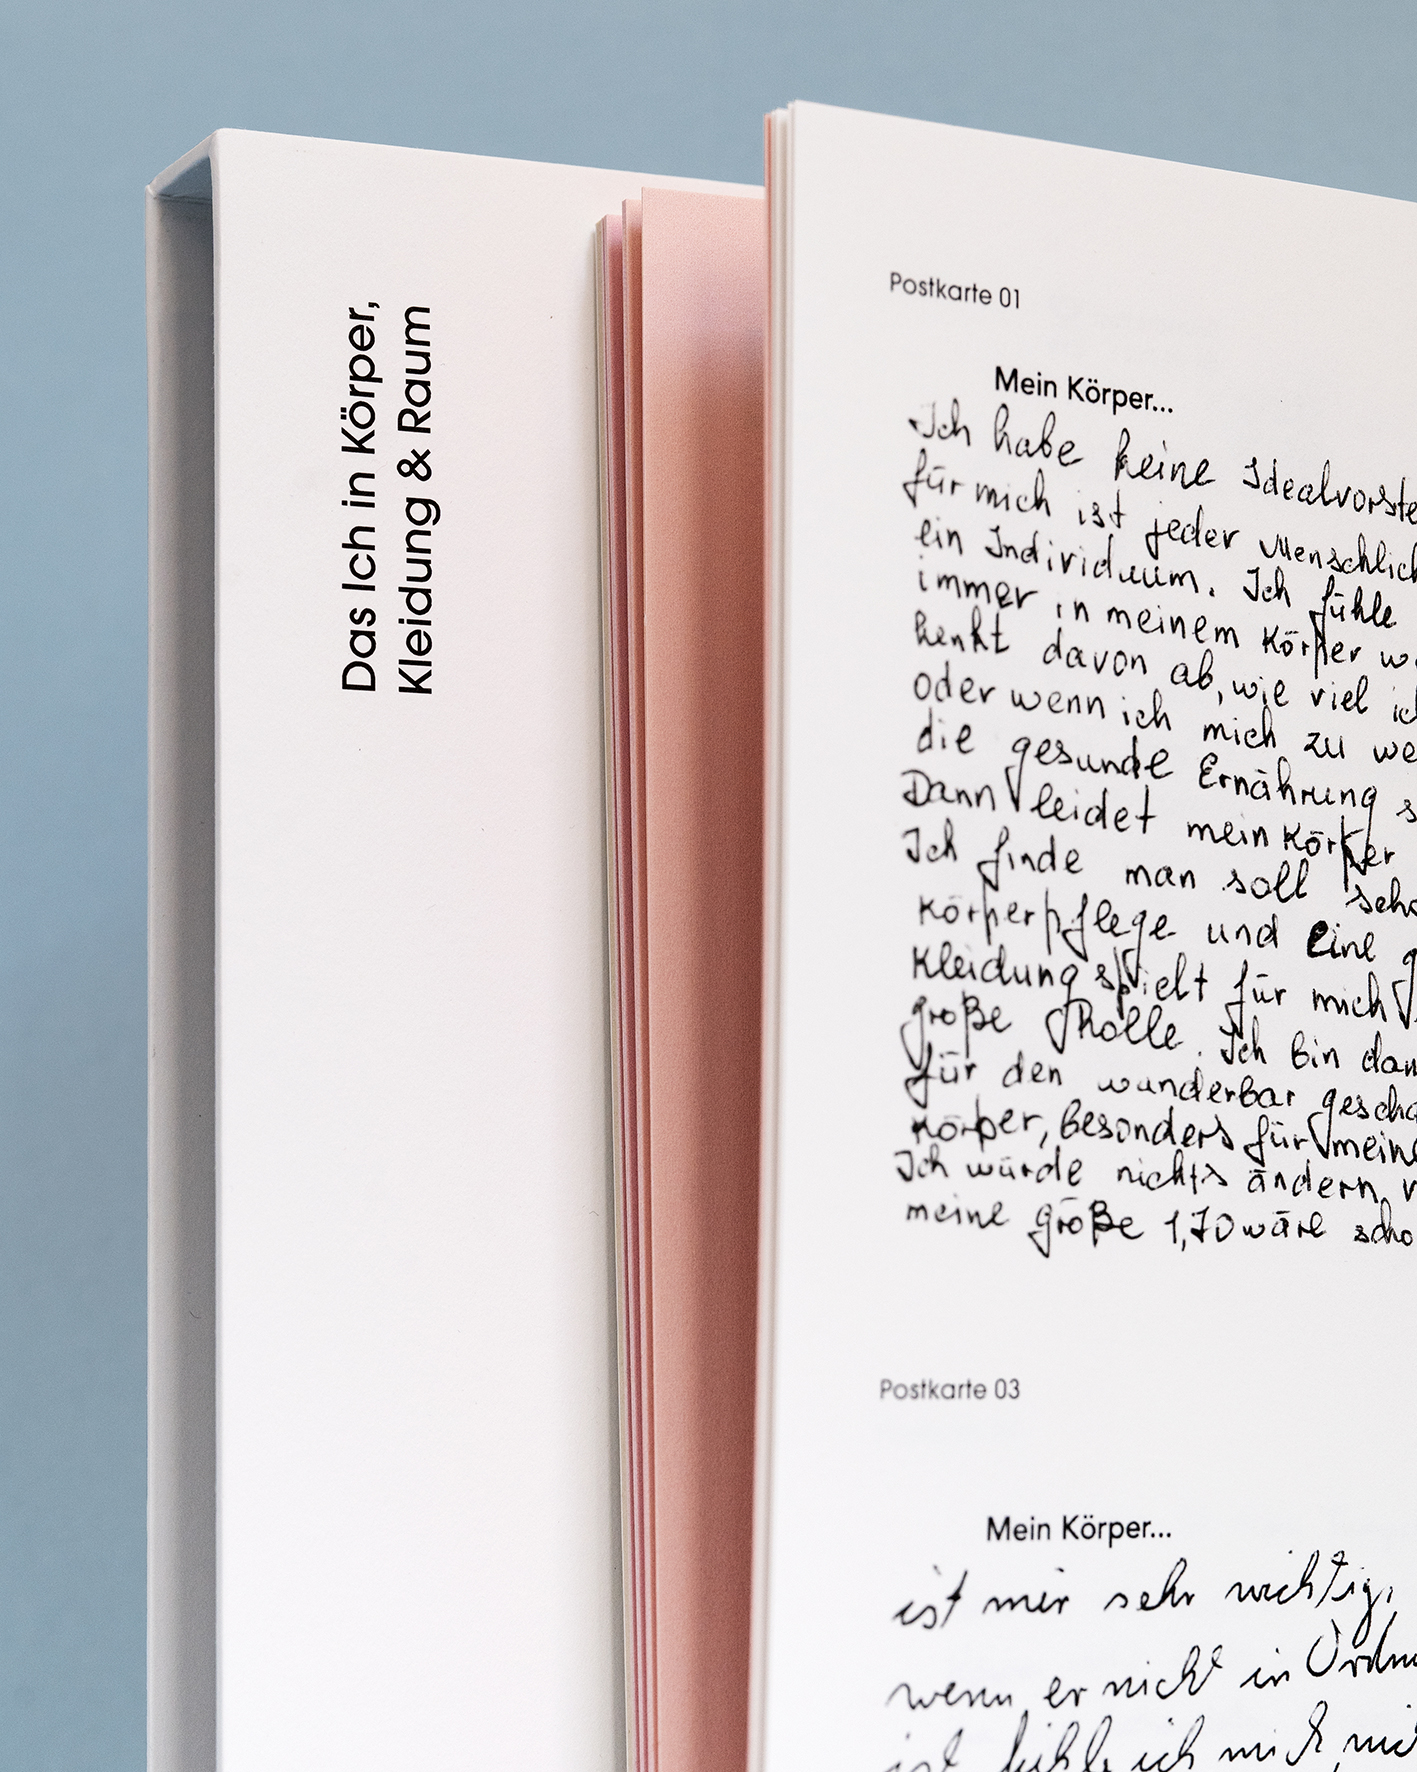 Das Ich in Körper,
Kleidung & Raum
Postkarte 01
Mein Körper...
Ich habe keine Idealvorste
für mich ist jeder menschlich
ein Individuum. Ich fühle
immer in meinem Körper w
henkt davon ab, wie viel ic
oder wenn ich mich zu we
die gesunde Ernährung s
Dann leidet mein Körper
Ich finde man soll scho
Körperpflege und eine g
Kleidung spielt für mich
große Rolle. Ich bin dan
für den wunderbar gescha
Körper, besonders für meine
Ich würde nichts ändern, v
meine größe 1,70 wäre scho
Postkarte 03
Mein Körper...
ist mir sehr wichtig,
wenn er nicht in Ordnu
ist fühle ich mich nic